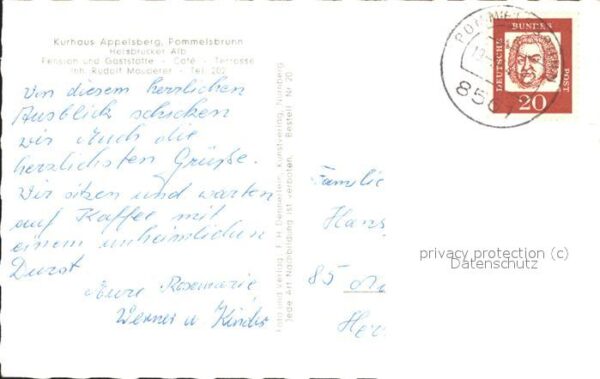 Kurhaus Appelsberg, Pommelsbrunn
Hersbrucker Alb
Pension und Gaststätte - Café - Terrasse
Inh. Rudolf Mauderer - Tel. 202
Von diesem herrlichen
Ausblick schicken
wir Euch die
herzlichsten Grüße.
Wir sitzen und warten
auf Kaffee mit
einem unheimlichen
Durst
Eure Rosemarie
Werner u Kinder
Foto und Verlag: F. H. Dennerlein, Kunstverlag, Nürnberg
Jede Art Nachbildung ist verboten. Bestell Nr 20
DEUTSCHE BUNDES POST
20
8561
Familie
Hans
85
Her
privacy protection (c)
Datenschutz